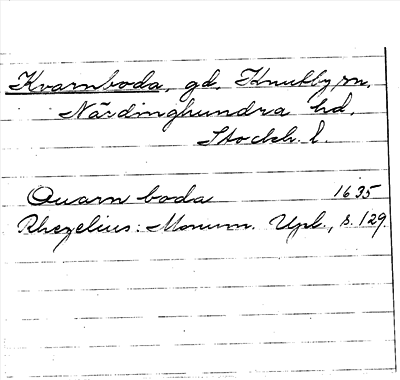 Kvarnboda, gd, Knutby sn,
Närdinghundra hd.
Stockh. l.
Quarn boda 1635
Rhezelius: Monum. Upl., s. 129.